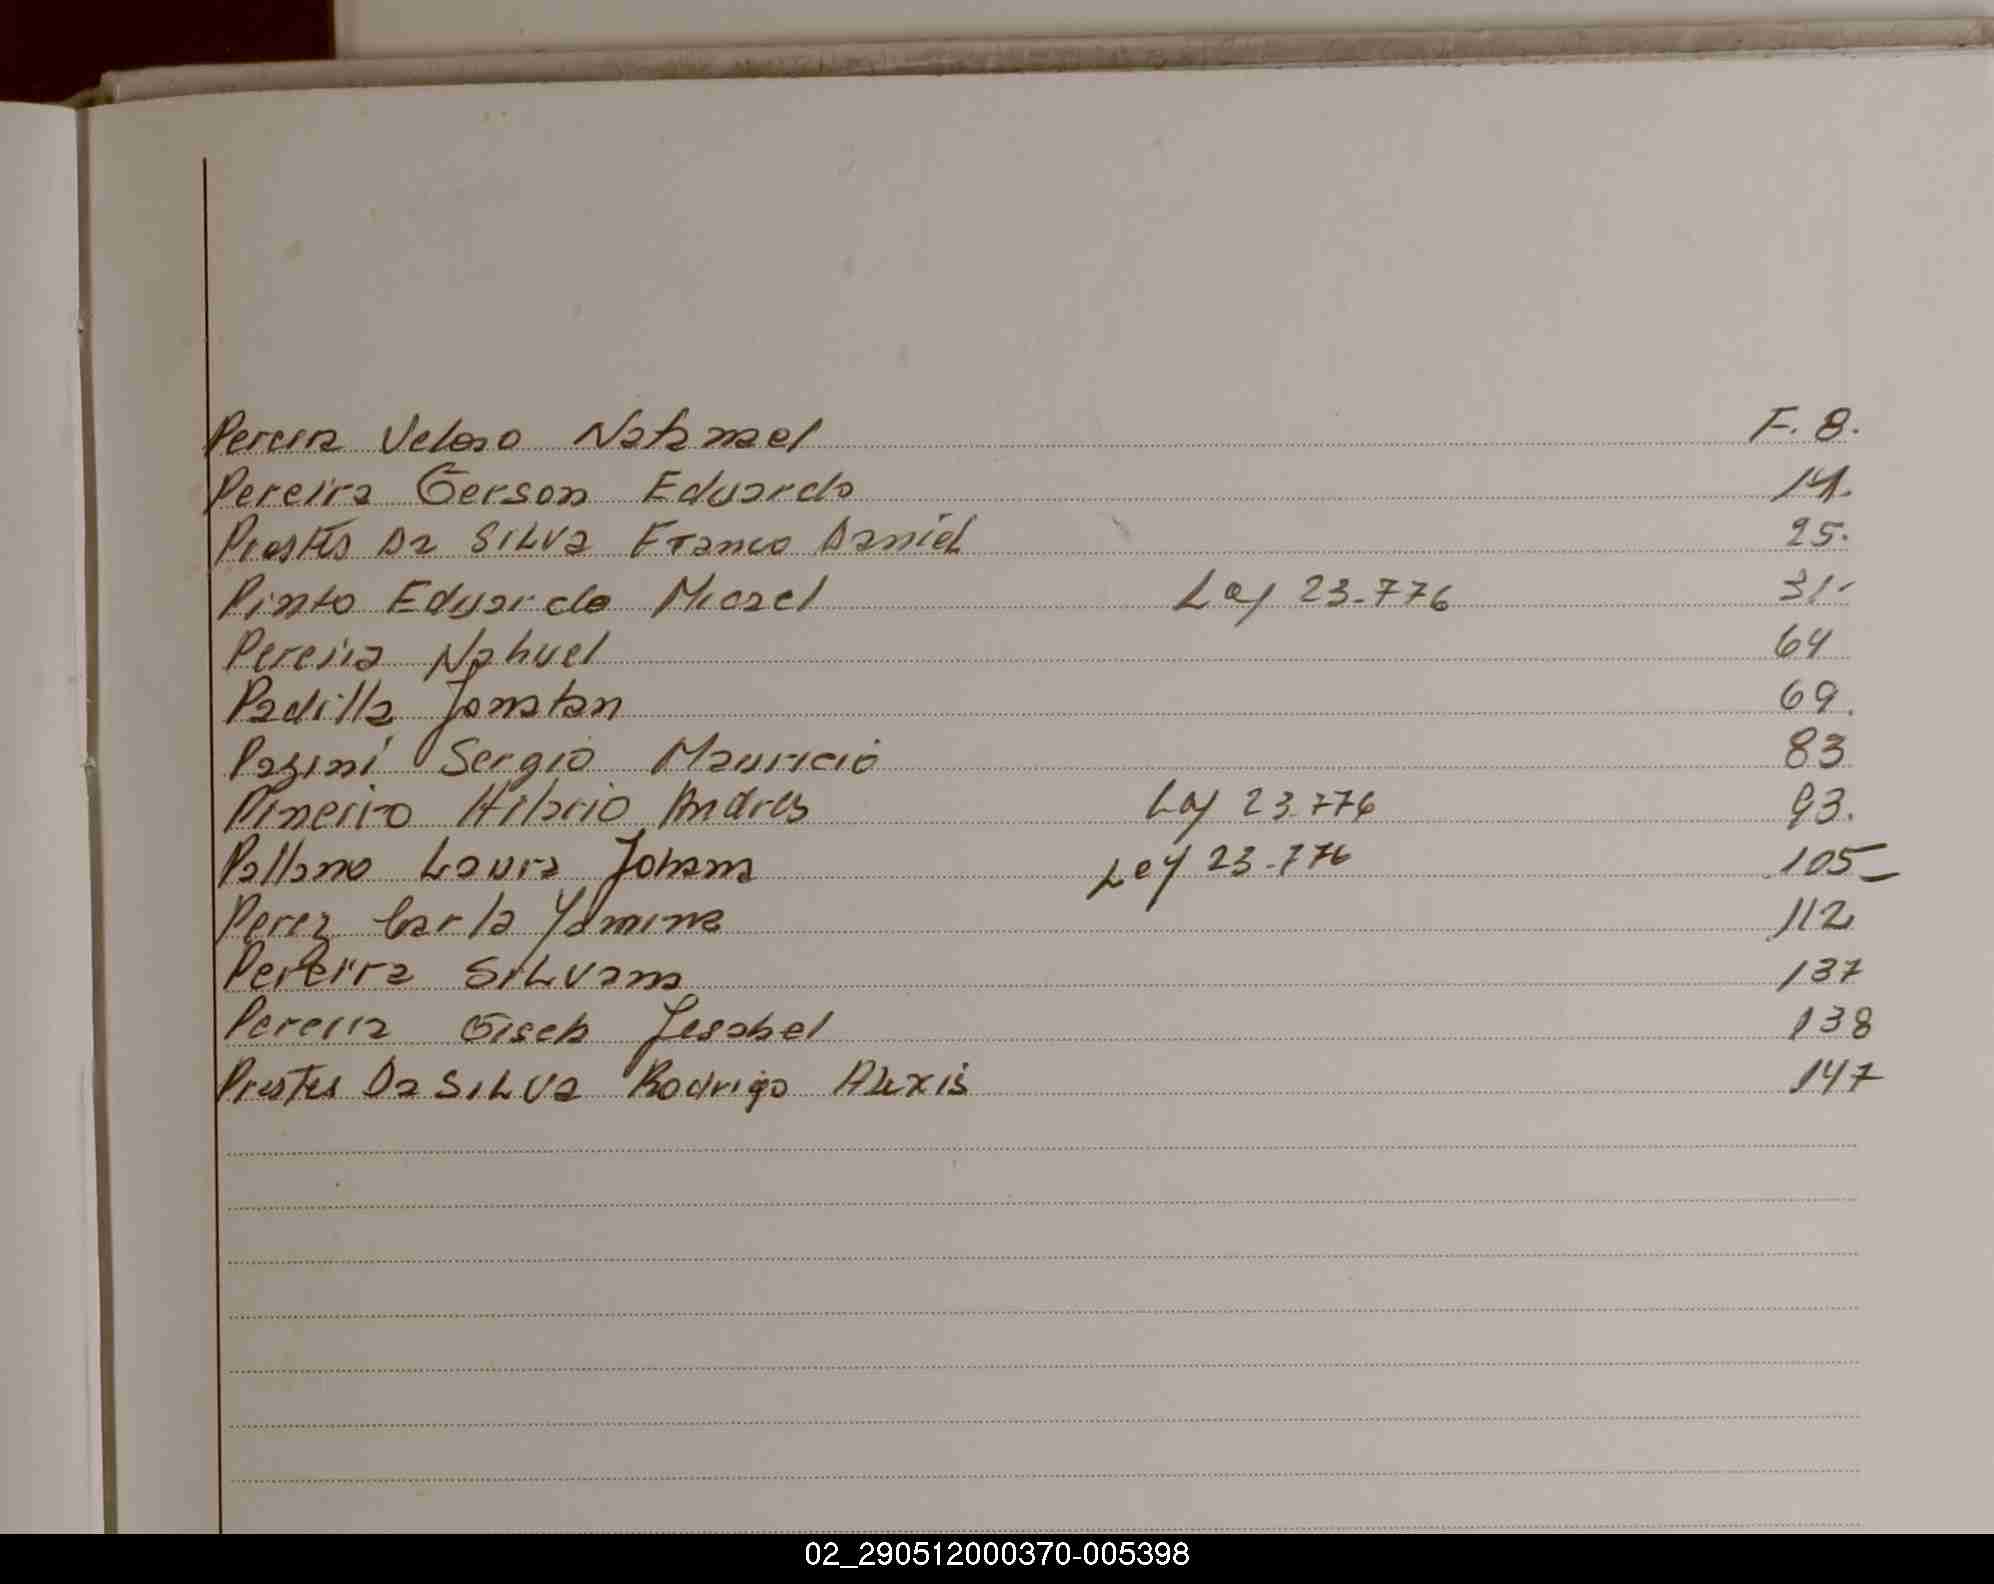 Pereira Veloso Natanael F. 8.
Pereira Gerson Eduardo 14.
Prestes Da SILVA Franco Daniel 25.
Pinto Eduardo Micael Ley 23.776 31.
Pereira Nahuel 64
Padilla Jonatan 69.
Pasini Sergio Mauricio 83
Pineiro Hilario Andres Ley 23.776 93.
Pallano Laura Johana Ley 23.776 105
Perez Carla Yamina 112
Pereira SILVana 137
Pereira Gisela Jesabel 138
Prestes Da SILVA Rodrigo Alexis 147
02_290512000370-005398